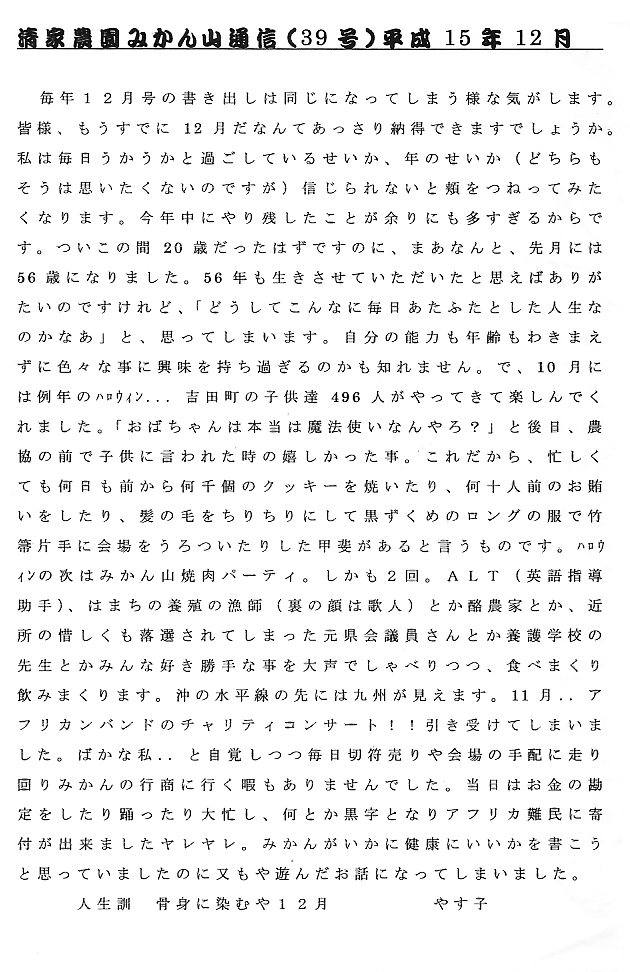 清家農園みかん山通信（39号）平成15年12月
毎年１２月号の書き出しは同じになってしまう様な気がします。
皆様、もうすでに 12 月だなんてあっさり納得できますでしょうか。
私は毎日うかうかと過ごしているせいか、年のせいか（どちらも
そうは思いたくないのですが）信じられないと頬をつねってみた
くなります。今年中にやり残したことが余りにも多すぎるからで
す。ついこの間 20 歳だったはずですのに、まあなんと、先月には
56 歳になりました。56 年も生きさせていただいたと思えばありが
たいのですけれど、「どうしてこんなに毎日あたふたとした人生な
のかなあ」と、思ってしまいます。自分の能力も年齢もわきまえ
ずに色々な事に興味を持ち過ぎるのかも知れません。で、10 月に
は例年のﾊﾛｳｨﾝ... 吉田町の子供達 496 人がやってきて楽しんでく
れました。「おばちゃんは本当は魔法使いなんやろ？」と後日、農
協の前で子供に言われた時の嬉しかった事。これだから、忙しく
ても何日も前から何千個のクッキーを焼いたり、何十人前のお賄
いをしたり、髪の毛をちりちりにして黒ずくめのロングの服で竹
箒片手に会場をうろついたりした甲斐があると言うものです。ﾊﾛｳ
ｨﾝの次はみかん山焼肉パーティ。しかも２回。ＡＬＴ（英語指導
助手）、はまちの養殖の漁師（裏の顔は歌人）とか酪農家とか、近
所の惜しくも落選されてしまった元県会議員さんとか養護学校の
先生とかみんな好き勝手な事を大声でしゃべりつつ、食べまくり
飲みまくります。沖の水平線の先には九州が見えます。11 月.. ア
フリカンバンドのチャリティコンサート！！引き受けてしまいま
した。ばかな私.. と自覚しつつ毎日切符売りや会場の手配に走り
回りみかんの行商に行く暇もありませんでした。当日はお金の勘
定をしたり踊ったり大忙し、何とか黒字となりアフリカ難民に寄
付が出来ましたヤレヤレ。みかんがいかに健康にいいかを書こう
と思っていましたのに又もや遊んだお話になってしまいました。
人生訓　骨身に染むや１２月　　　　やす子